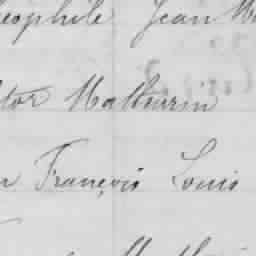 eophile Jean M
tor Mathurin
François Louis